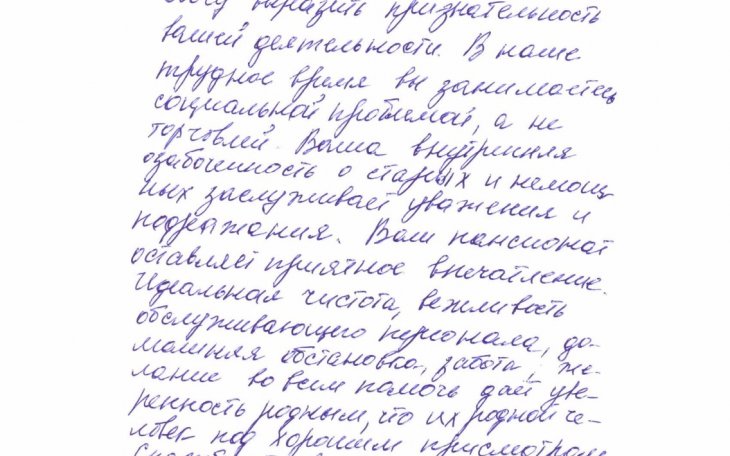 выразить признательность
вашей деятельности. В наше
трудное время вы занимаетесь
социальной проблемой, а не
торговлей. Ваша внутриняя
озабоченность о старых и немощ
ных заслуживает уважения и
подражания. Ваш пансионат
оставляет приятное впечатление.
Идеальная чистота, вежливость
обслуживающего персонала, до-
машняя обстановка, забота, же-
лание во всем помочь дает уве-
ренность родным, что их родной че-
ловек под хорошим присмотром